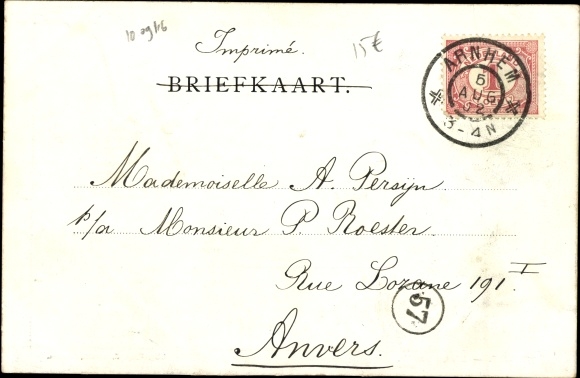 15€
Imprimé.
BRIEFKAART.
ARNHEM
6
AUG
02
3-4N
1
Mademoiselle A. Persijn
p/a Monsieur P. Roester.
Rue Lozane 191 I
57
Anvers.